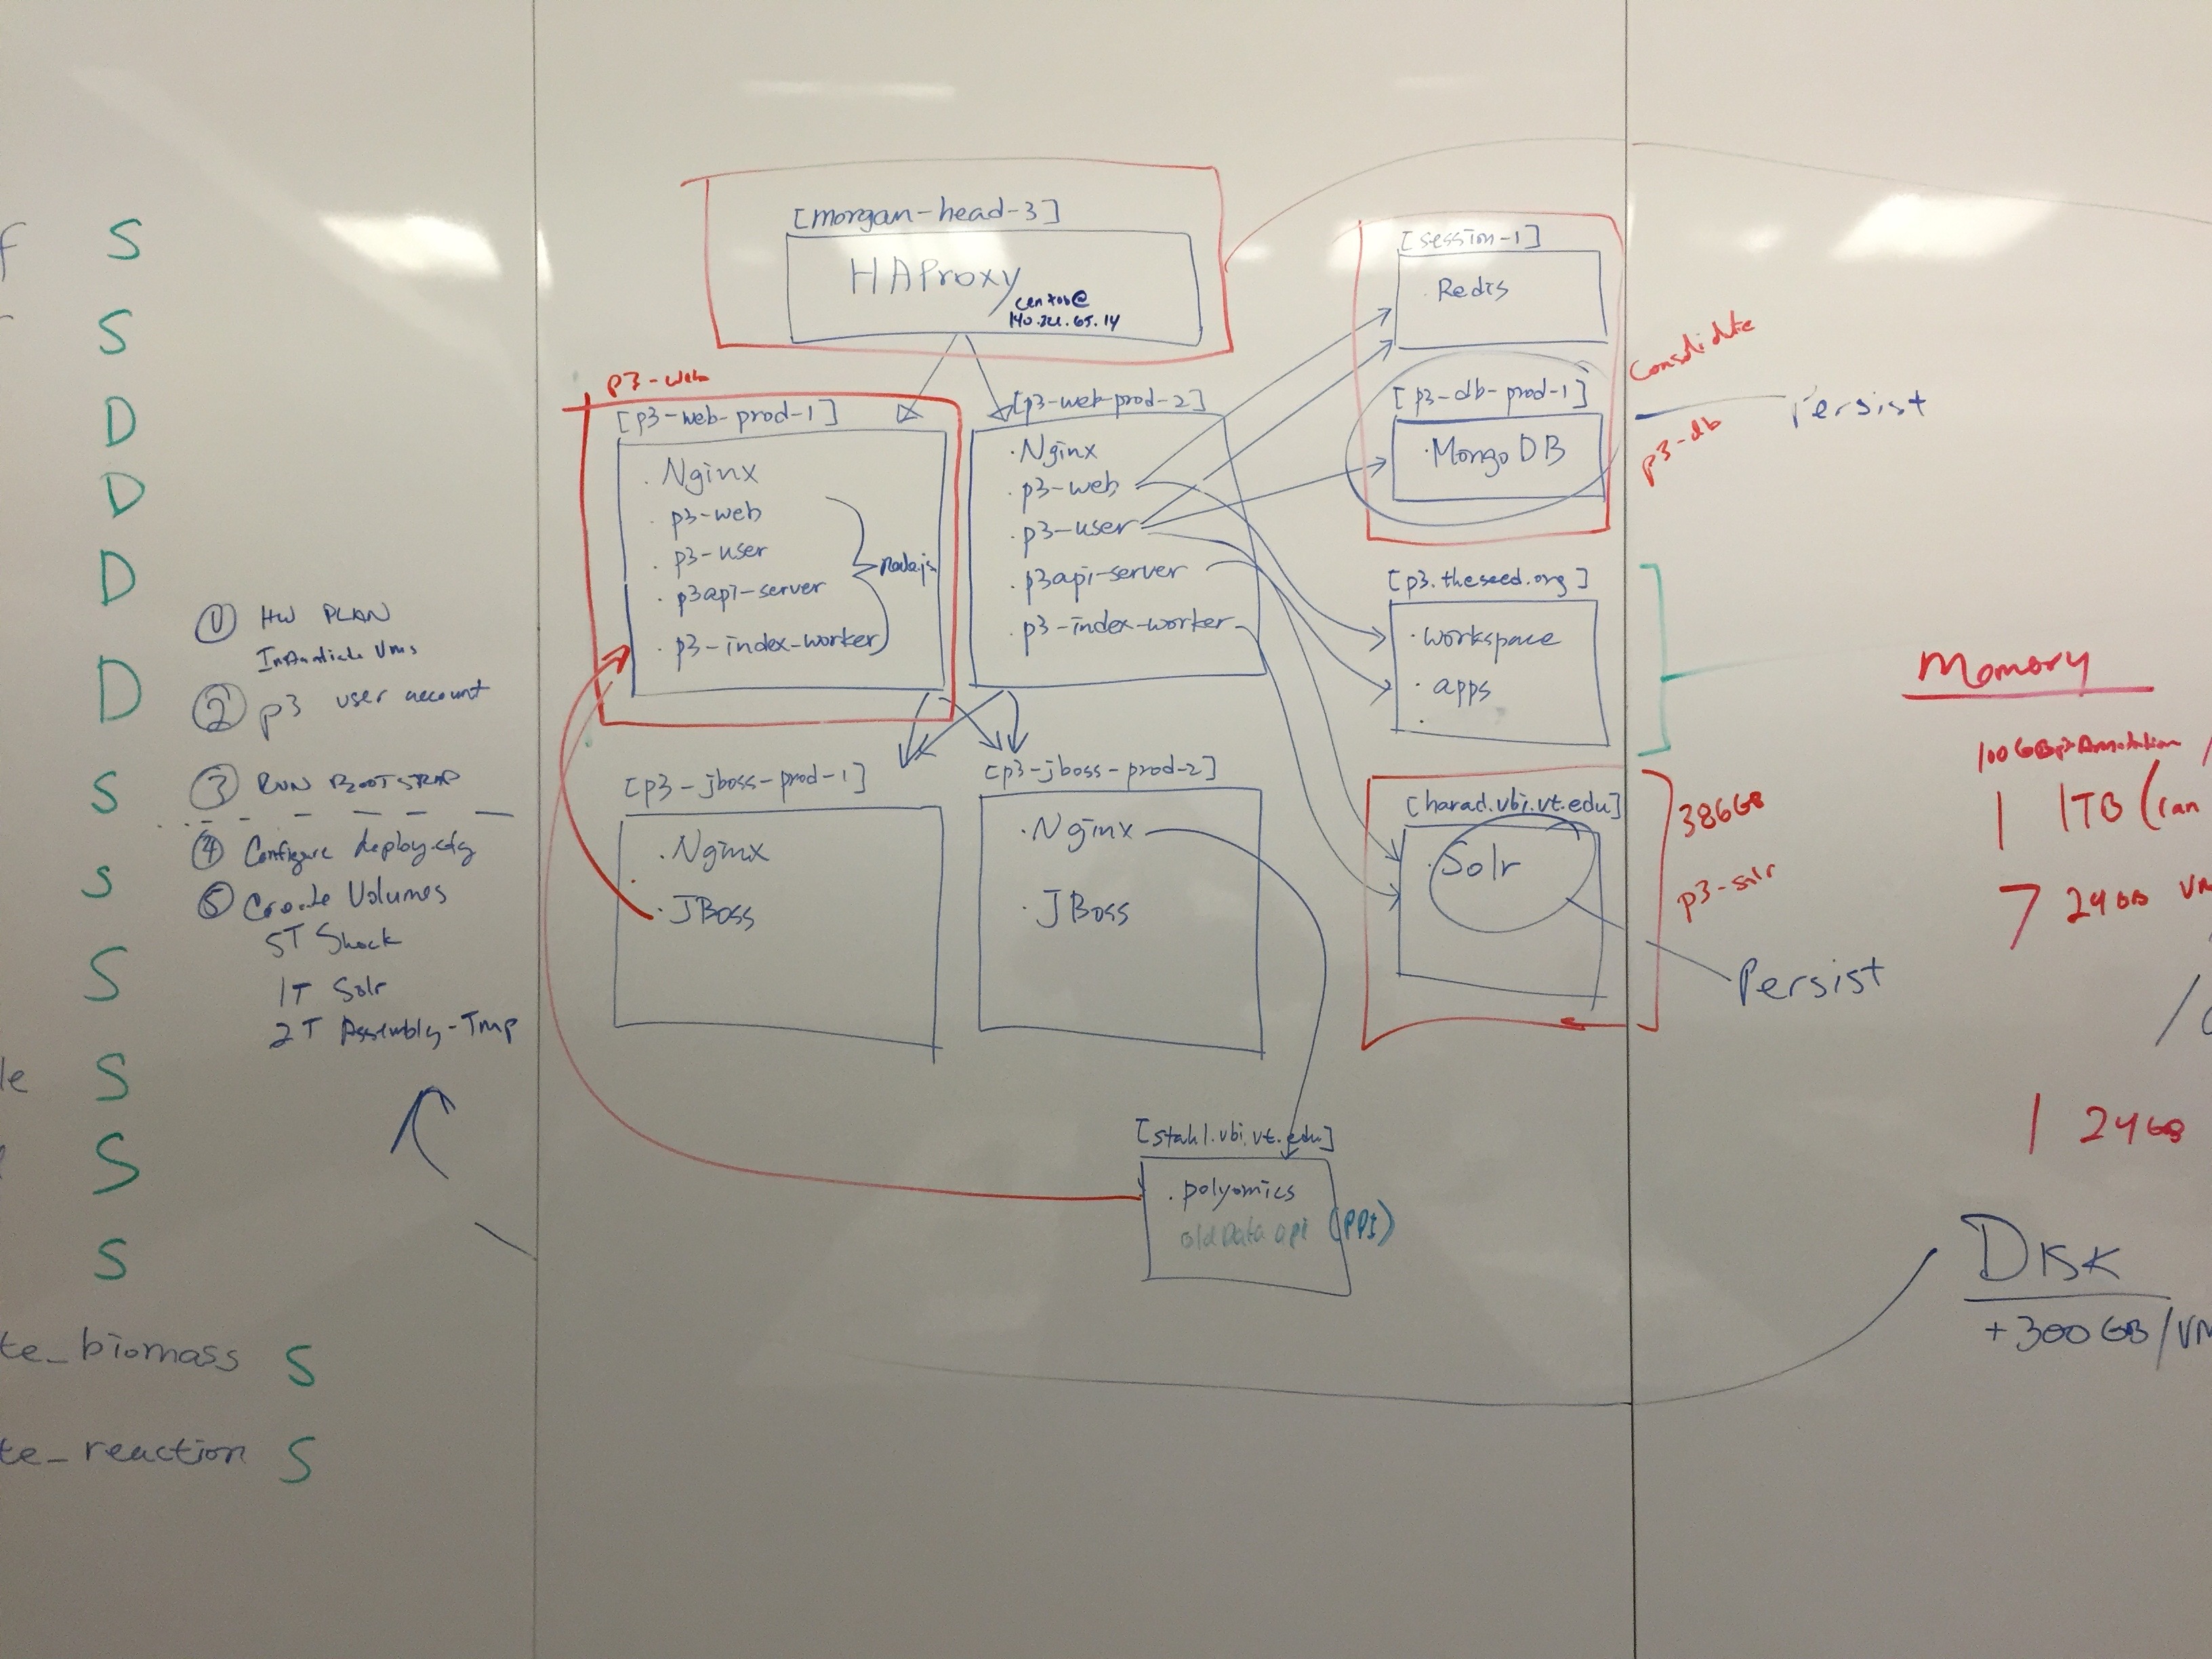 S
S
D
D
D
D
S
S
S
le S
S
S
te_biomass S
te_reaction S
① HW PLAN
② p3 user account
③ RUN BOOTSTRAP
④ Configure deploy.cfg
⑤ Create Volumes
5T Shock
1T Solr
2T Assembly-Tmp
[morgan-head-3]
HAProxy
centos@
p3-web
[p3-web-prod-1]
· Nginx
· p3-web
· p3-user
· p3api-server
· p3-index-worker
Nodejs
[p3-web-prod-2]
· Nginx
· p3-web
· p3-user
· p3api-server
· p3-index-worker
[p3-jboss-prod-1]
· Nginx
· JBoss
[p3-jboss-prod-2]
· Nginx
· JBoss
[stahl.vbi.vt.edu]
· polyomics
old Data api (PPI)
[session-1]
· Redis
[p3-db-prod-1]
· MongoDB
Consolidate
p3-db
Persist
[p3.theseed.org]
· workspace
· apps
[harad.vbi.vt.edu]
· Solr
386GB
p3-solr
Persist
Memory
100GB Annotation
1 1TB (ran
7 24GB VM
1 24GB
DISK
+300GB/VM